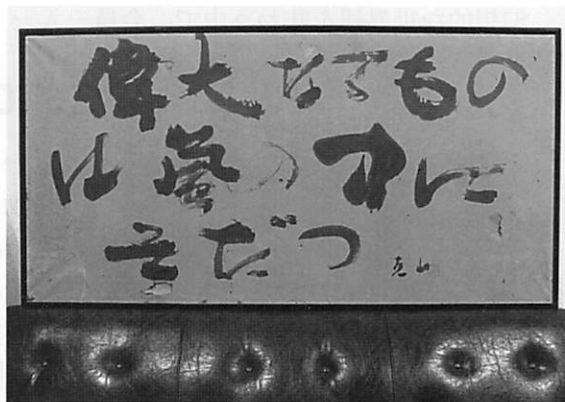 偉大なるもの
は嵐の中に
そだつ